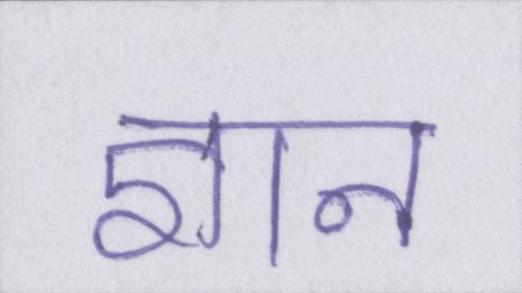 ज्ञान